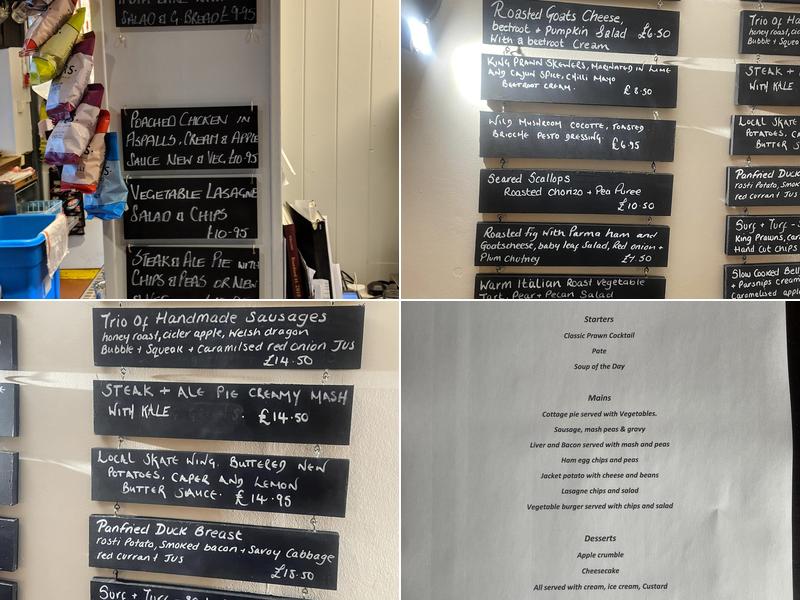 SALAD & G. BREAD £9.95
POACHED CHICKEN IN
ASPALLS, CREAM & APPLE
SAUCE NEW & VEG. £10.95
VEGETABLE LASAGNE
SALAD & CHIPS
£10.95
STEAK & ALE PIE WITH
CHIPS & PEAS OR NEW
Roasted Goats Cheese,
beetroot + Pumpkin Salad £6.50
With a beetroot Cream
KING PRAWN SKEWERS, MARINATED IN LIME
AND CAJUN SPICE, CHILLI MAYO
BEETROOT CREAM.
£8.50
WILD MUSHROOM COCOTTE, TOASTED
BRIOCHE PESTO DRESSING.
£6.95
Seared Scallops
Roasted Chorizo + Pea Puree
£10.50
Roasted fig with Parma ham and
Goatscheese, baby leaf Salad, Red onion +
Plum Chutney £7.50
Warm Italian Roast Vegetable
Tart, Pear + Pecan Salad
Trio of H
honey roast, cid
Bubble + Squeo
STEAK +
WITH KALE
LOCAL SKATE
POTATOES, CA
BUTTER S
Panfried Duck
rosti Potato, Smok
red currant Jus
Surf + Turf - S
King Prawns, car
Hand Cut Chips
Slow Cooked Bell
+ Parsnips cream
Caramelised appl
Trio of Handmade Sausages
honey roast, cider apple, Welsh dragon
Bubble + Squeak + Caramilsed red onion Jus
£14.50
STEAK + ALE PIE CREAMY MASH
WITH KALE £14.50
LOCAL SKATE WING. BUTTERED NEW
POTATOES, CAPER AND LEMON
BUTTER SAUCE. £14.95
Panfried Duck Breast
rosti Potato, Smoked bacon + Savoy Cabbage
red currant Jus
£18.50
Surf + Turf
Starters
Classic Prawn Cocktail
Pate
Soup of the Day
Mains
Cottage pie served with Vegetables.
Sausage, mash peas & gravy
Liver and Bacon served with mash and peas
Ham egg chips and peas
Jacket potato with cheese and beans
Lasagne chips and salad
Vegetable burger served with chips and salad
Desserts
Apple crumble
Cheesecake
All served with cream, ice cream, Custard